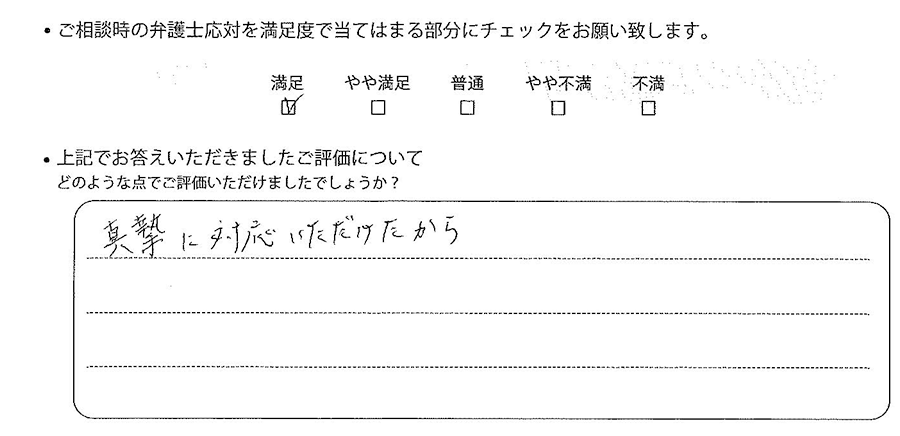 ・ご相談時の弁護士応対を満足度で当てはまる部分にチェックをお願い致します。
満足 やや満足 普通 やや不満 不満
☑ ☐ ☐ ☐ ☐
・上記でお答えいただきましたご評価について
どのような点でご評価いただけましたでしょうか？
真摯に対応いただけたから